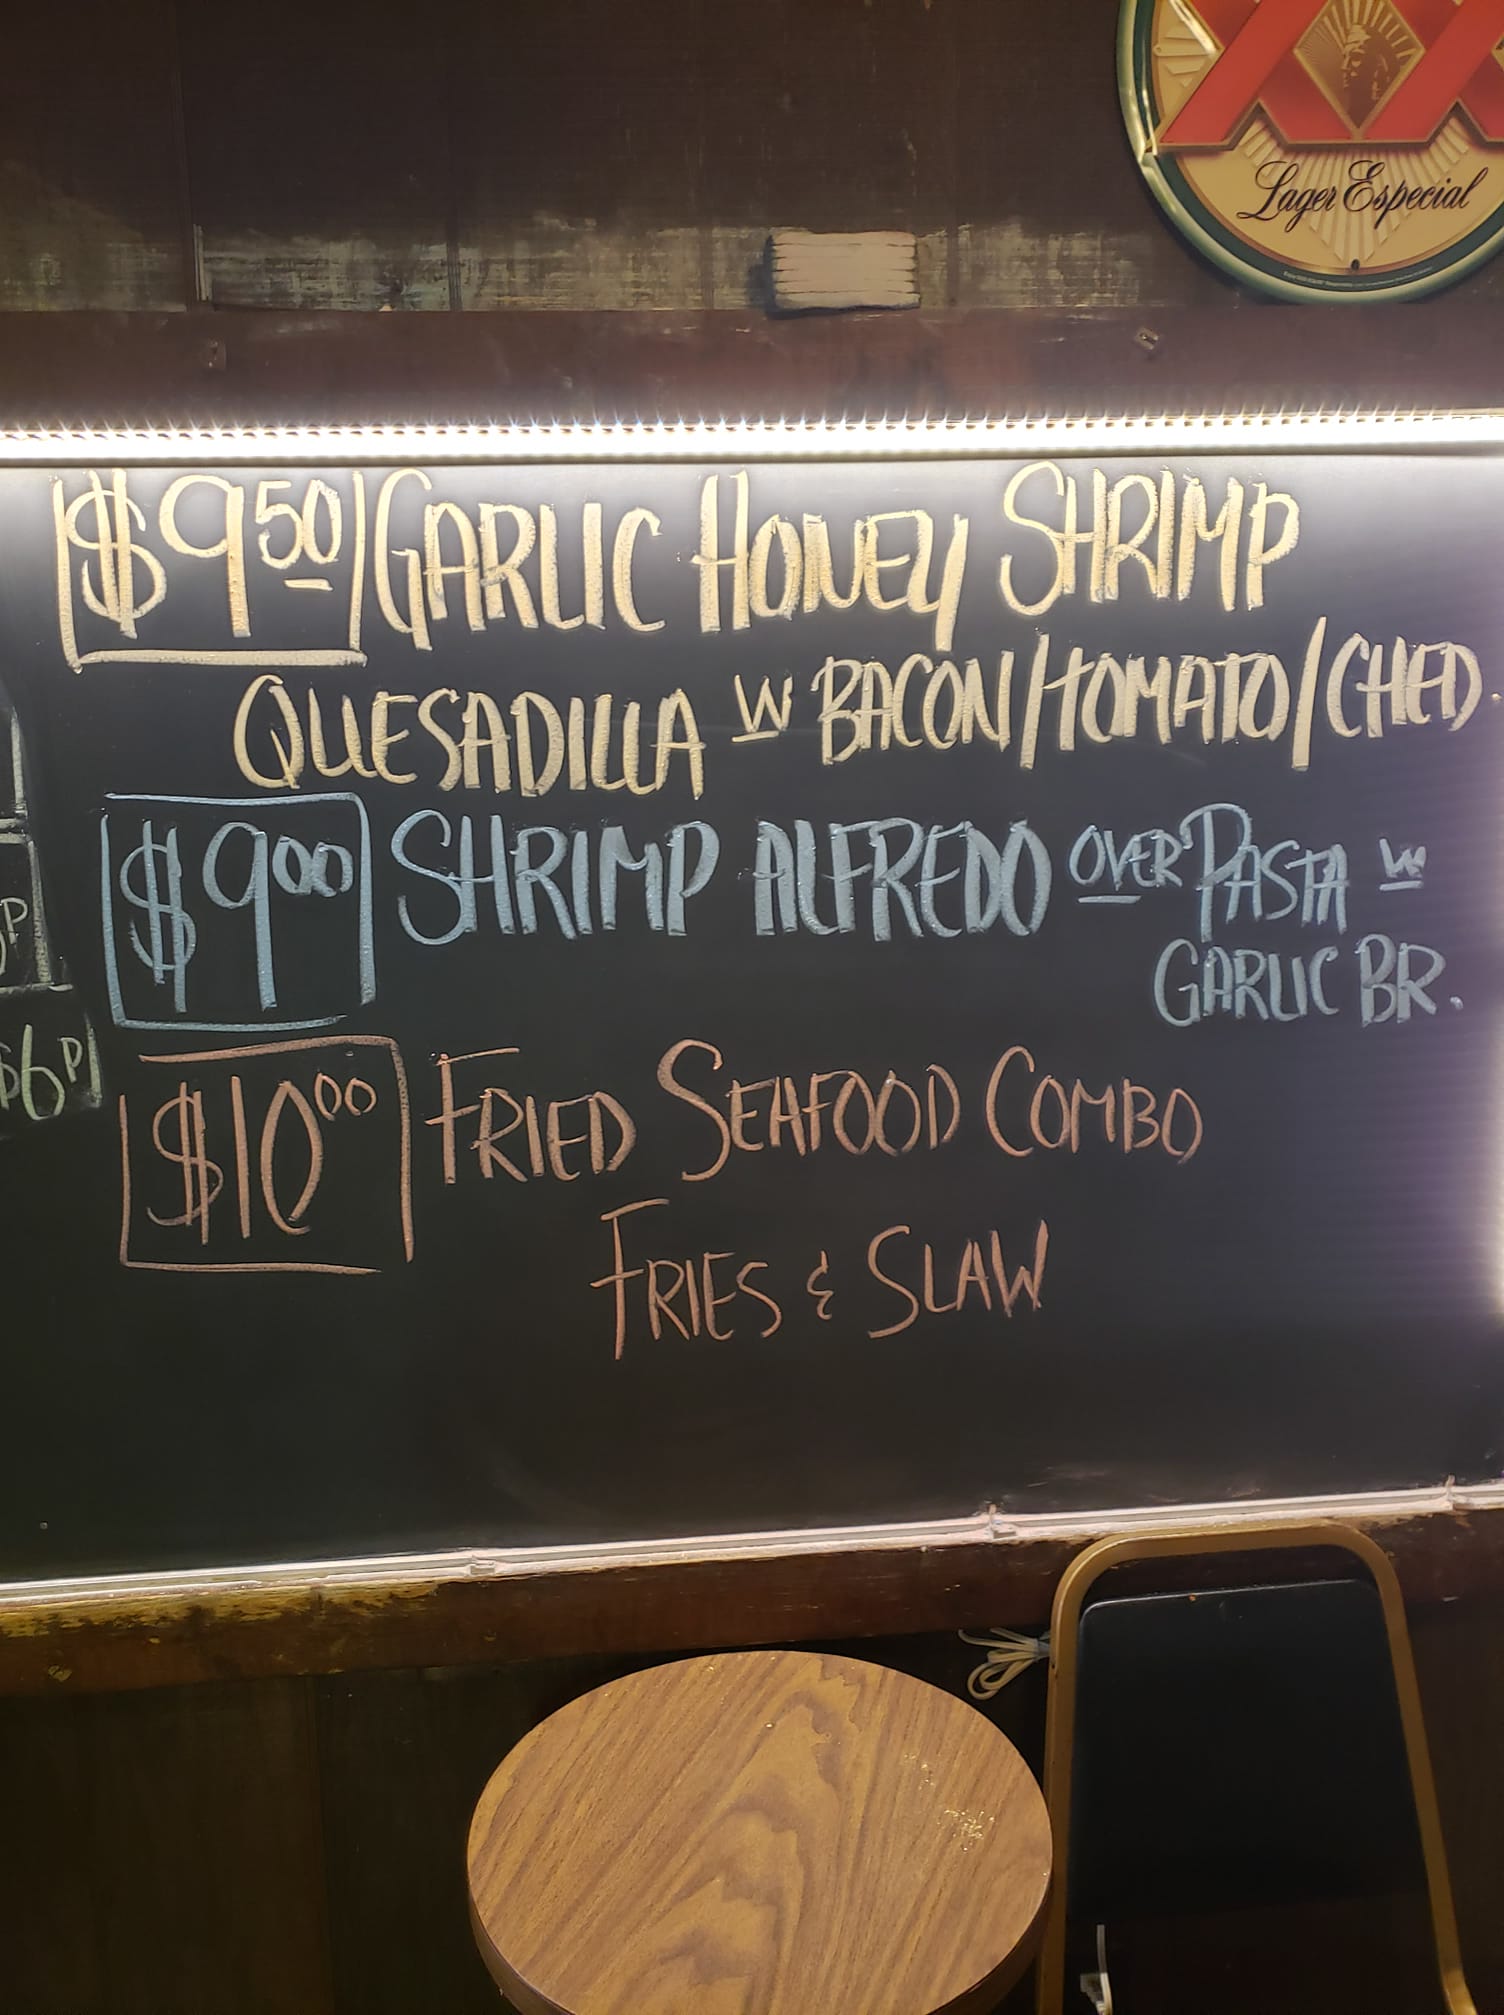 XX
Lager Especial
$9.50 GARLIC HONEY SHRIMP
QUESADILLA W BACON/TOMATO/CHED.
$9.00 SHRIMP ALFREDO OVER PASTA W
GARLIC BR.
$6P
$10.00 FRIED SEAFOOD COMBO
FRIES & SLAW